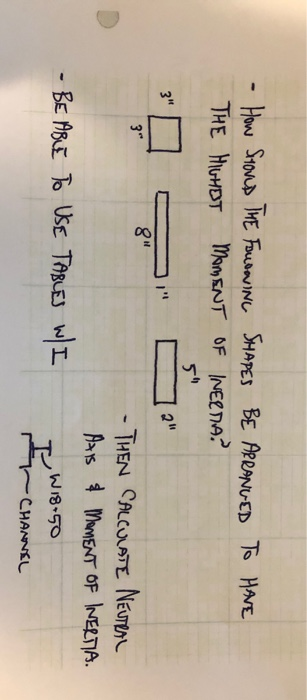 - HOW SHOULD THE FOLLOWING SHAPES BE ARRANGED TO HAVE
THE HIGHEST MOMENT OF INERTIA?
3" 3" 8" 1" 5" 2"
- THEN CALCULATE NEUTRAL
AXIS & MOMENT OF INERTIA.
- BE ABLE TO USE TABLES W/ I
W18×50
CHANNEL